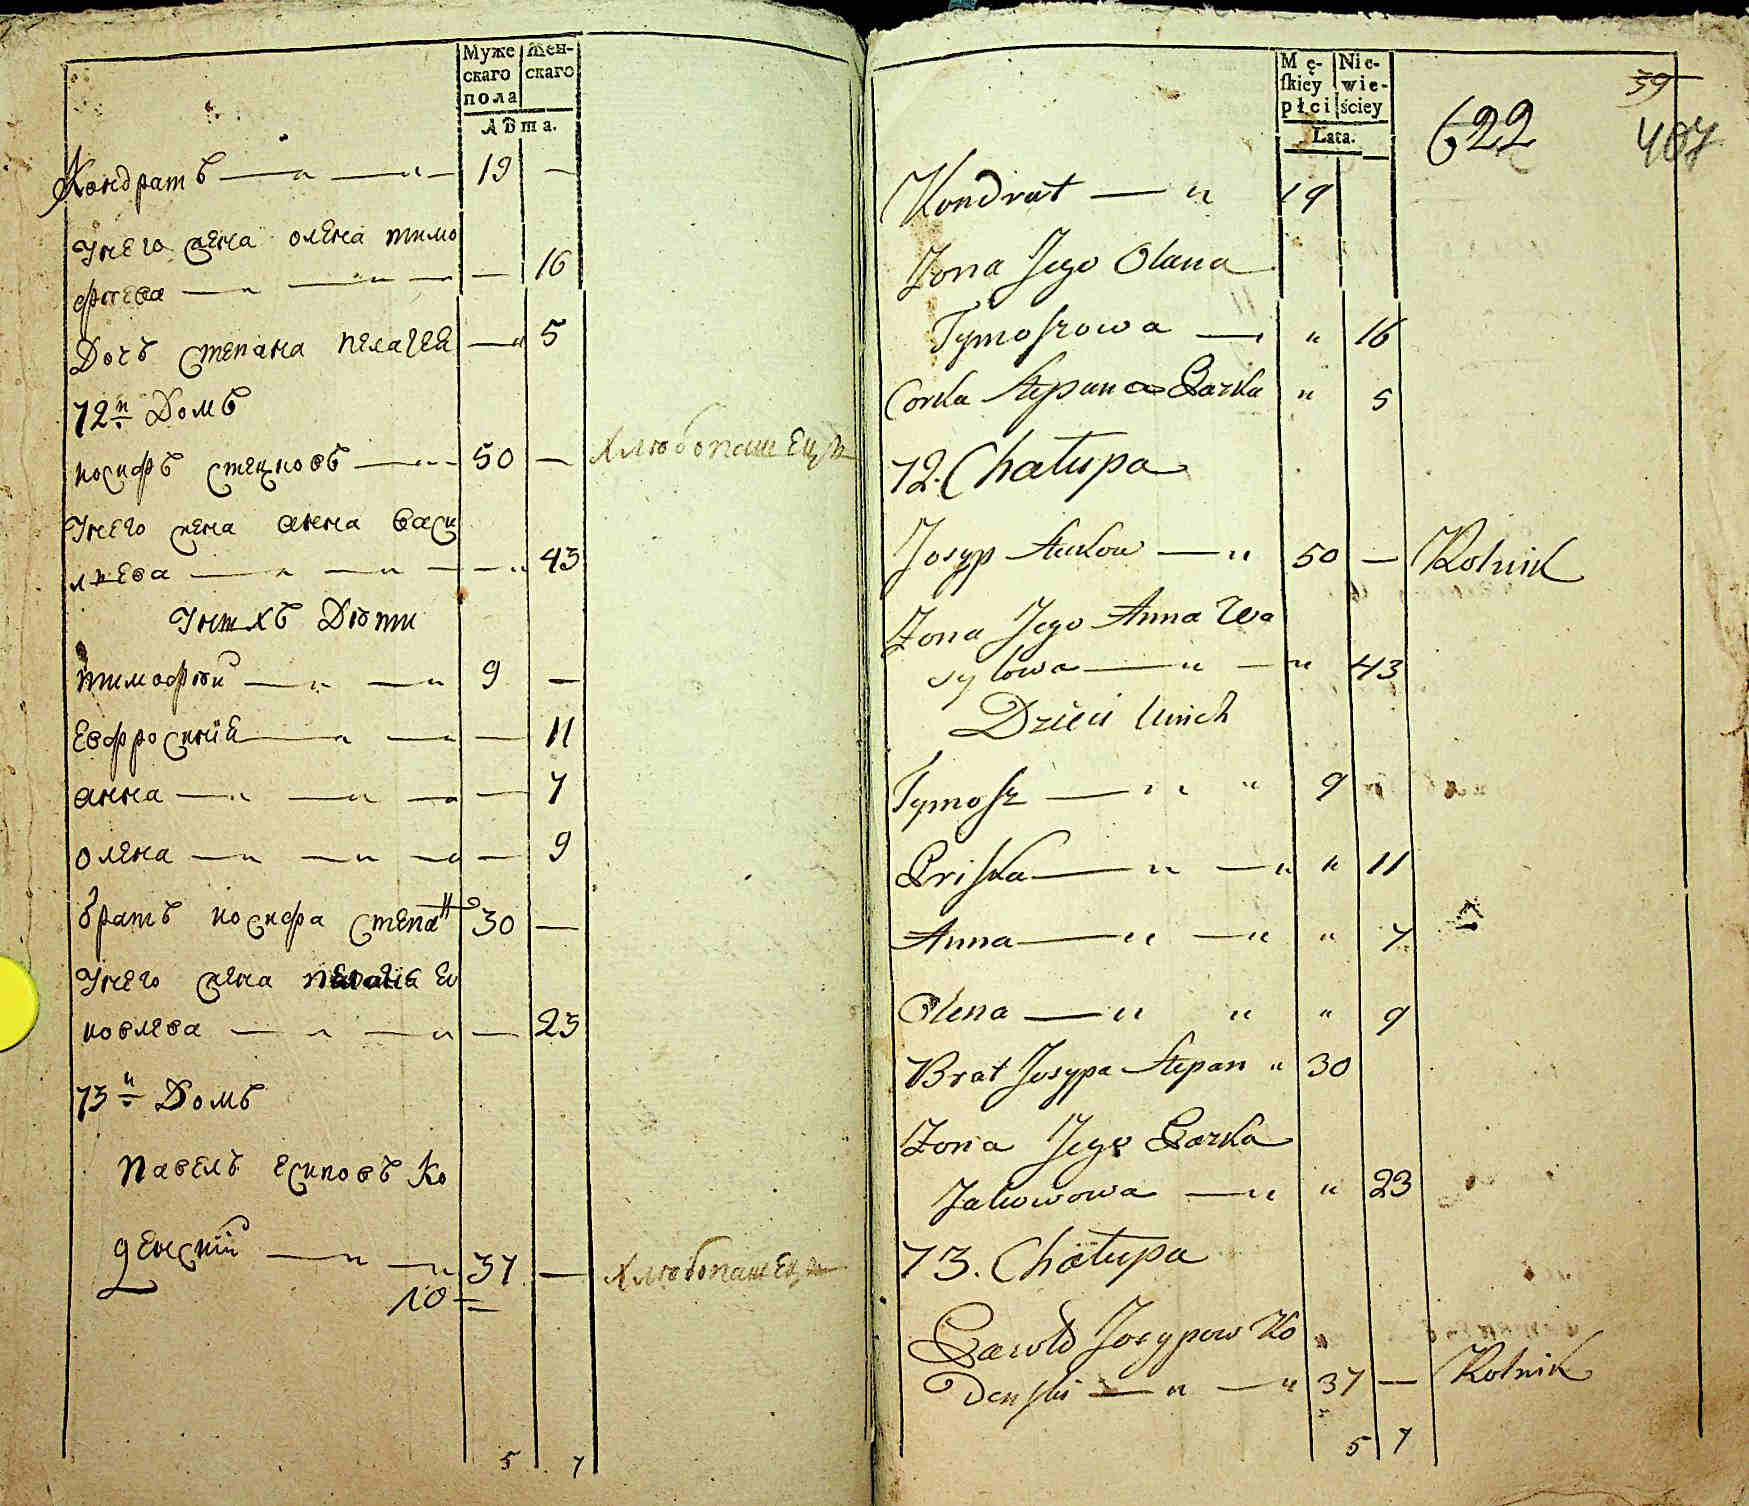 Муже
скаго
пола
Жен-
скаго
Лѣта.
Кондратъ — „ — „ — 19 —
Унего жена олена тимо
фѣева — „ — „ — — 16
Дочь степана пелагея — „ 5
72й Домъ
иосифъ стецковъ — „ — 50 — хлѣбопашецъ
Унего жена анна васи
лиева — „ — „ — „ 43
Унихъ Дѣти
тимофѣй — „ — „ 9 —
Евфросиния — „ — „ — 11
анна — „ — „ — — 7
олена — „ — „ — — 9
братъ иосифа степан 30 —
Унего жена пелагея
ковлева — „ — „ — 23
73й Домъ
павелъ есиповъ Ко
денский — „ — „ 37 — хлѣбопашецъ
10
5 7
Mę-
skiey
płci
Nie-
wie-
ściey
Lata.
622
59
467
Kondrat — „ 19
Zona Jego Olana
Tymoszowa — „ „ 16
Corka Stepana Parka „ 5
72. Chałupa
Josyp Steckow — „ 50 — Rolnik
Zona Jego Anna Wa
sylowa — „ — „ 43
Dzieci Unich
Tymosz — „ „ 9
Priska — „ — „ „ 11
Anna — „ — „ „ 7
Olena — „ „ „ 9
Brat Josypa Stepan „ 30
Zona Jego Parka
Jakowowa — „ „ 23
73. Chałupa
Pawło Josypow Ko
Denski — „ — „ 37 — Rolnik
5 7